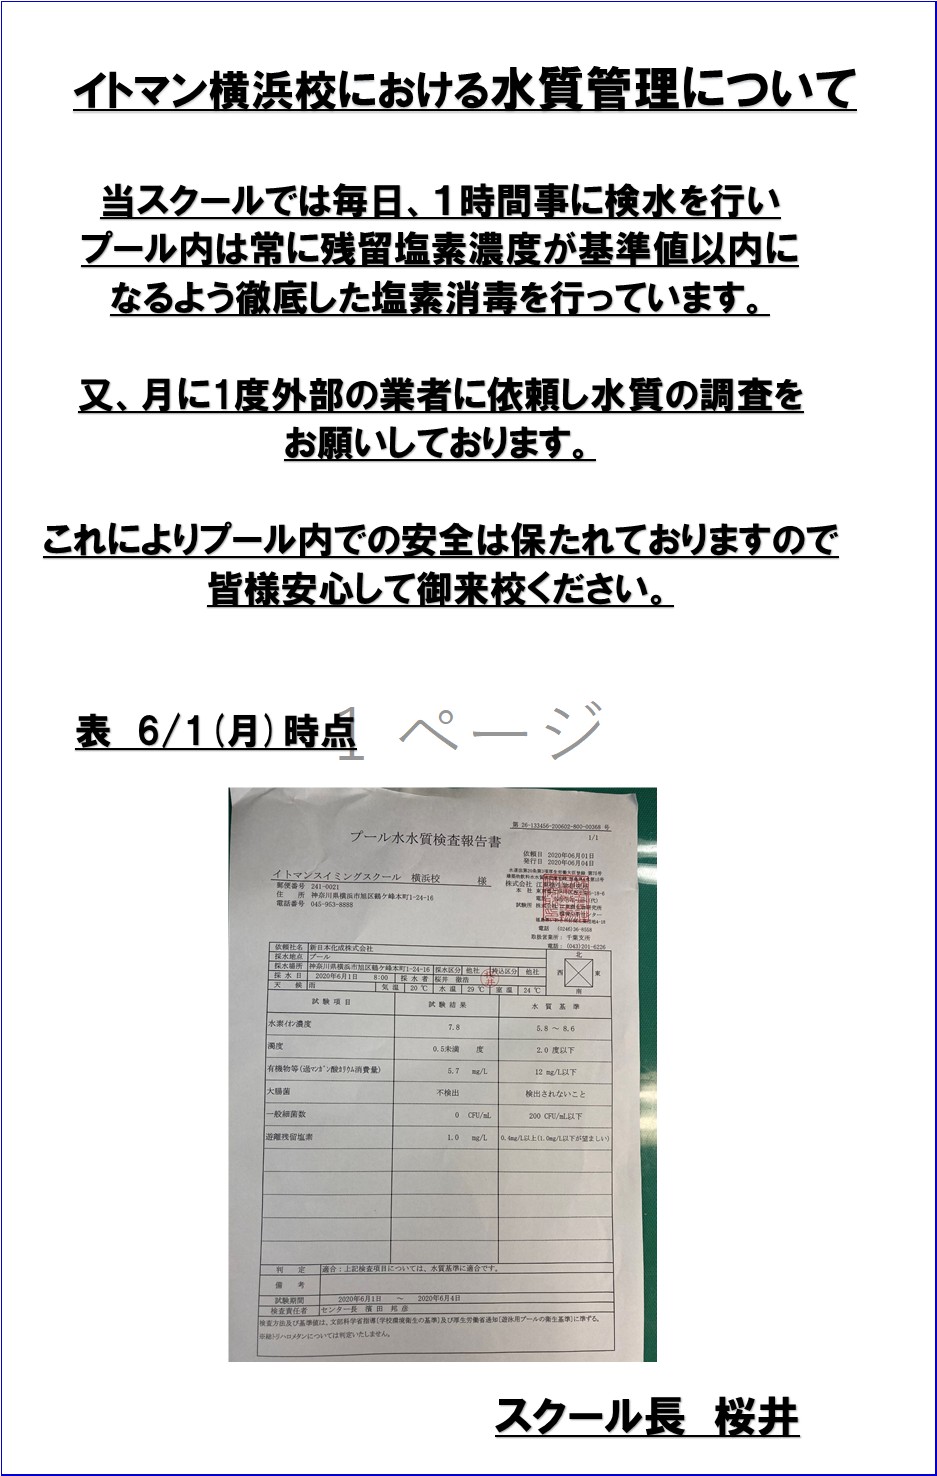 イトマン横浜校における水質管理について
当スクールでは毎日、１時間事に検水を行い
プール内は常に残留塩素濃度が基準値以内に
なるよう徹底した塩素消毒を行っています。
又、月に1度外部の業者に依頼し水質の調査を
お願いしております。
これによりプール内での安全は保たれておりますので
皆様安心して御来校ください。
表　6/1(月)時点
1 ページ
第 26-133456-200602-800-00368 号
1/1
プール水水質検査報告書
依頼日 2020年06月01日
発行日 2020年06月04日
イトマンスイミングスクール　横浜校　様
郵便番号 241-0021
住　所 神奈川県横浜市旭区鶴ケ峰本町1-24-16
電話番号 045-953-8888
株式会社
電話 (0246)36-8558
取扱営業所： 千葉支所
電話： (043)201-6226
依頼社名 新日本化成株式会社
採水地点 プール
採水場所 神奈川県横浜市旭区鶴ケ峰本町1-24-16 採水区分 他社 持込区分 他社
採水日 2020年6月1日 8:00 採水者 桜井
天候 雨 気温 20 ℃ 水温 29 ℃ 室温 24 ℃
北
西 東
南
試験項目 試験結果 水質基準
水素ｲｵﾝ濃度 7.8 5.8 ～ 8.6
濁度 0.5未満 度 2.0 度以下
有機物等(過ﾏﾝｶﾞﾝ酸ｶﾘｳﾑ消費量) 5.7 mg/L 12 mg/L以下
大腸菌 不検出 検出されないこと
一般細菌数 0 CFU/mL 200 CFU/mL以下
遊離残留塩素 1.0 mg/L 0.4mg/L以上(1.0mg/L以下が望ましい)
判定 適合：上記検査項目については、水質基準に適合です。
備考
試験期間 2020年6月1日 ～ 2020年6月4日
検査責任者 センター長 濱田 邦彦
検査方法及び基準値は、文部科学省指導[学校環境衛生の基準]及び厚生労働省通知[遊泳用プールの衛生基準]に準ずる。
※総トリハロメタンについては判定いたしません。
スクール長　桜井